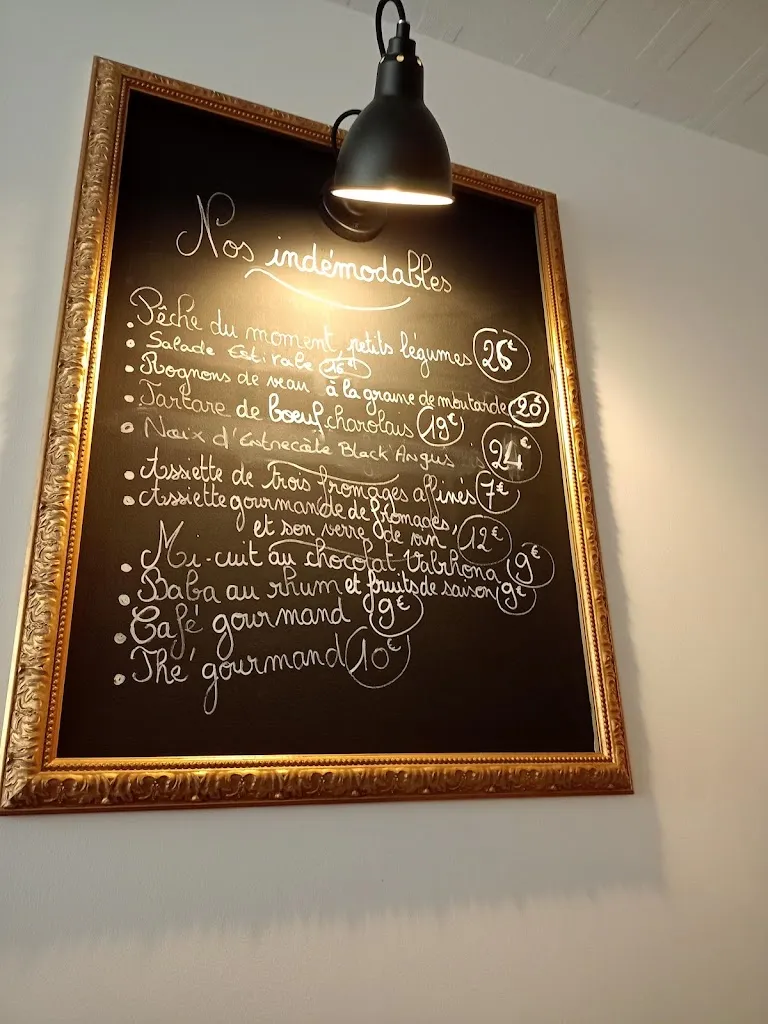 Nos indémodables
• Pêche du moment, petits légumes 26€
• Salade Estivale 16€
• Rognons de veau à la graine de moutarde 20€
• Tartare de bœuf charolais 19€
• Noix d'Entrecôte Black Angus 24€
• Assiette de trois fromages affinés 7€
• Assiette gourmande de fromages,
et son verre de vin 12€
• Mi-cuit au chocolat Valrhona 9€
• Baba au rhum et fruits de saison 9€
• Café gourmand 9€
• Thé gourmand 10€